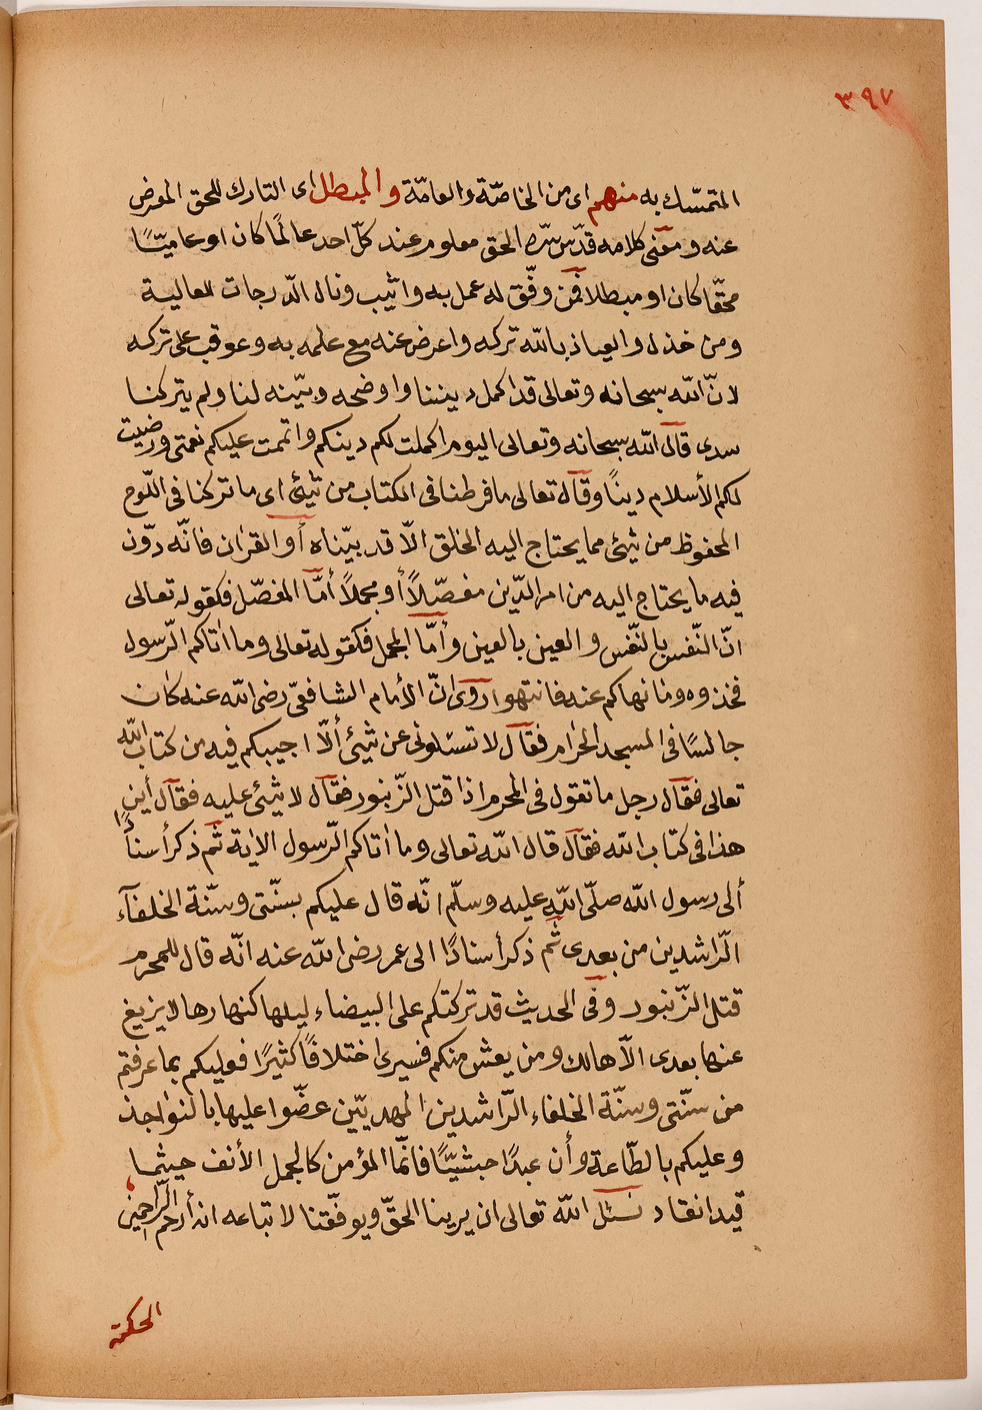 ٣٩٧
المتمسّك به منهم اى من الخاصّة والعامّة والمبطل اى التارك للحق المعرض
عنه ومعنى كلامه قدّس سرّه الحق معلوم عند كلّ احد عالمًا كان او عاميّا
محقّا كان او مبطلا فمن وفّق له عمل به واثيب ونال الدّرجات العالية
ومن خذل والعياذ بالله تركه واعرض عنه مع علمه به وعوقب على تركه
لانّ الله سبحانه وتعالى قد اكمل ديننا واوضحه وبيّنه لنا ولم يتركنا
سدى قال الله سبحانه وتعالى اليوم اكملت لكم دينكم واتممت عليكم نعمتى ورضيت
لكم الأسلام دينًا وقال تعالى ما فرطنا فى الكتاب من شئ اى ما تركنا فى اللّوح
المحفوظ من شئ مما يحتاج اليه الخلق الّا قد بيّناه أو القران فانّه دوّن
فيه ما يحتاج اليه من امر الدّين مفصّلًا أو مجملًا أمّا المفصّل فكقوله تعالى
انّ النّفس بالنّفس والعين بالعين وأمّا المجمل فكقوله تعالى وما اٰتاكم الرّسول
فخذوه وما نهاكم عنه فانتهوا روى انّ الأمام الشافعىّ رضى الله عنه كان
جالسًا فى المسجد الحرام فقال لا تسئلونى عن شئ ألّا اجيبكم فيه من كتاب الله
تعالى فقال رجل ما تقول فى المحرم اذا قتل الزّنبور فقال لا شئ عليه فقال أين
هذا فى كتاب الله فقال قال الله تعالى وما اٰتاكم الرّسول الاية ثم ذكر أسنادًا
ألى رسول الله صلّى الله عليه وسلّم انّه قال عليكم بسنّتى وسنّة الخلفآء
الرّاشدين من بعدى ثم ذكر أسنادًا الى عمر رضى الله عنه انّه قال للمحرم
قتل الزّنبور وفى الحديث قد تركتكم على البيضاء ليلها كنهارها لا يزيغ
عنها بعدى الّا هالك ومن يعش منكم فسيرى اختلافًا كثيرًا فعليكم بما عرفتم
من سنّتى وسنّة الخلفاء الرّاشدين المهديّين عضّوا عليها بالنواجذ
وعليكم بالطّاعة وأن عبدًا حبشيّا فانّما المؤمن كالجمل الأنف حيثما
قيد انقاد نسئل الله تعالى ان يرينا الحقّ ويوفّقنا لاتباعه انه أرحم الرّاحمين
الحكمة